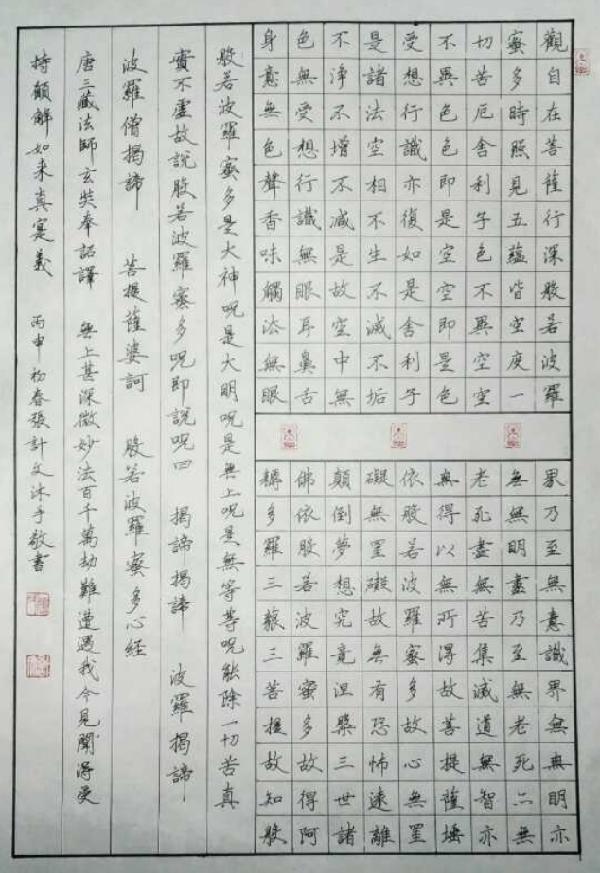 觀自在菩薩行深般若波羅
蜜多時照見五蘊皆空度一
切苦厄舍利子色不異空空
不異色色即是空空即是色
受想行識亦復如是舍利子
是諸法空相不生不滅不垢
不淨不增不減是故空中無
色無受想行識無眼耳鼻舌
身意無色聲香味觸法無眼
界乃至無意識界無無明亦
無無明盡乃至無老死亦無
老死盡無苦集滅道無智亦
無得以無所得故菩提薩埵
依般若波羅蜜多故心無罣
礙無罣礙故無有恐怖遠離
顛倒夢想究竟涅槃三世諸
佛依般若波羅蜜多故得阿
耨多羅三藐三菩提故知般
般若波羅蜜多是大神呪是大明呪是無上呪是無等等呪能除一切苦真
實不虛故說般若波羅蜜多呪即說呪曰 揭諦揭諦 波羅揭諦
波羅僧揭諦 菩提薩婆訶 般若波羅蜜多心經
唐三藏法師玄奘奉詔譯 無上甚深微妙法百千萬劫難遭遇我今見聞得受
持願解如来真寔義 丙申初春張計文沐手敬書